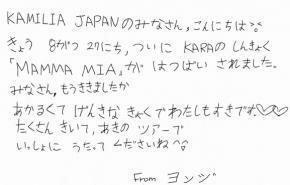 KAMILIA JAPANのみなさん,こんにちは^^
きょう 8がつ 27にち, ついに KARAの しんきょく
「MAMMA MIA」が はつばい されました。
みなさん, もうききましたか
あかるくて げんきな きょくで わたしもすきです♡♡
たくさん きいて, あきの ツアーで
いっしょに うたって くださいね^^
From ヨンジ